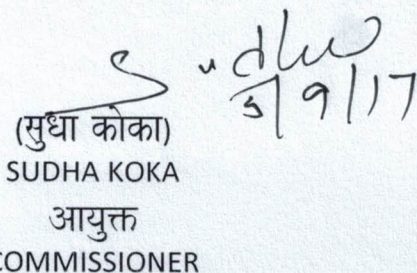 5/9/17
(सुधा कोका)
SUDHA KOKA
आयुक्त
COMMISSIONER